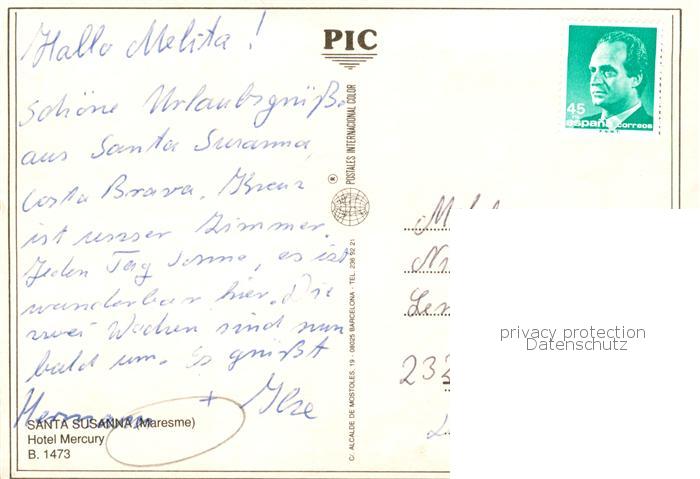 Hallo Melita!
PIC
Schöne Urlaubsgrüße
aus Santa Susanna,
Costa Brava. Kreuz
ist unser Zimmer.
Jeden Tag Sonne, es ist
wunderbar hier. Die
zwei Wochen sind nun
bald um. Es grüßt
Hermann + Ilse
SANTA SUSANNA (Maresme)
Hotel Mercury
B. 1473
POSTALES INTERNACIONAL COLOR
®
C/ ALCALDE DE MOSTOLES, 19 - 08025 BARCELONA - TEL. 236 92 21
45
españa correos
232
privacy protection
Datenschutz